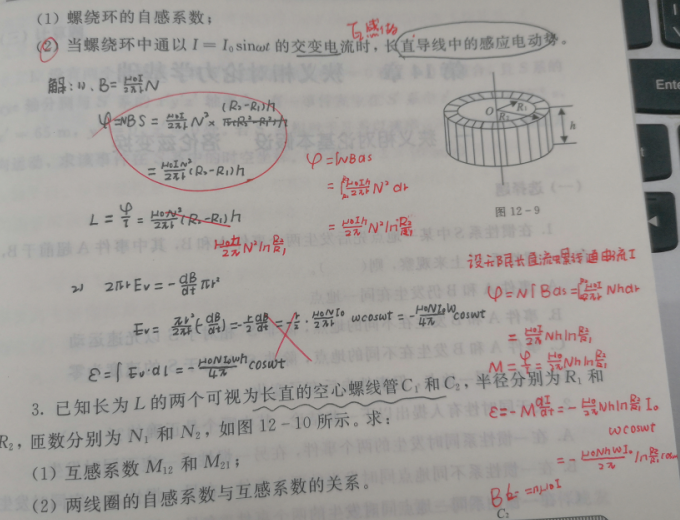 (1) 螺绕环的自感系数；
互感
(2) 当螺绕环中通以 I = I₀sinωt 的交变电流时，长直导线中的感应电动势。
解: 1). B = μ₀I/2πr N
(R₂-R₁)h
φ = NBS = μ₀I/2πr N² × π(R₂²-R₁²)h
= μ₀IN²/2πr (R₂-R₁)h
L = φ/I = μ₀N²/2πr (R₂-R₁)h
μ₀h/2π N² ln R₂/R₁
φ = ∫NBds
= ∫ μ₀Ih/2πr N² dr
= μ₀Ih/2π N² ln R₂/R₁
O R₁
R₂
h
图 12-9
2) 2πr Ev = - dB/dt πr²
Ev = πr²/2πr (dB/dt) = - r/2 dB/dt = - r/2 · μ₀NI₀/2πr ωcosωt = - μ₀NI₀ω/4π cosωt
ε = ∫Ev·dl = - μ₀NI₀ωh/4π cosωt
设无限长直流导线通电流 I
φ = N∫Bds = ∫ μ₀I/2πr Nhdr
= μ₀I/2π Nh ln R₂/R₁
M = φ/I = μ₀/2π Nh ln R₂/R₁
ε = -M dI/dt = - μ₀/2π Nh ln R₂/R₁ I₀
ωcosωt
= - μ₀NhωI₀/2π ln R₂/R₁ cosωt
3. 已知长为 L 的两个可视为长直的空心螺线管 C₁ 和 C₂，半径分别为 R₁ 和
R₂，匝数分别为 N₁ 和 N₂，如图 12-10 所示。求：
(1) 互感系数 M₁₂ 和 M₂₁；
(2) 两线圈的自感系数与互感系数的关系。
= nμ₀I
C₂
Ente